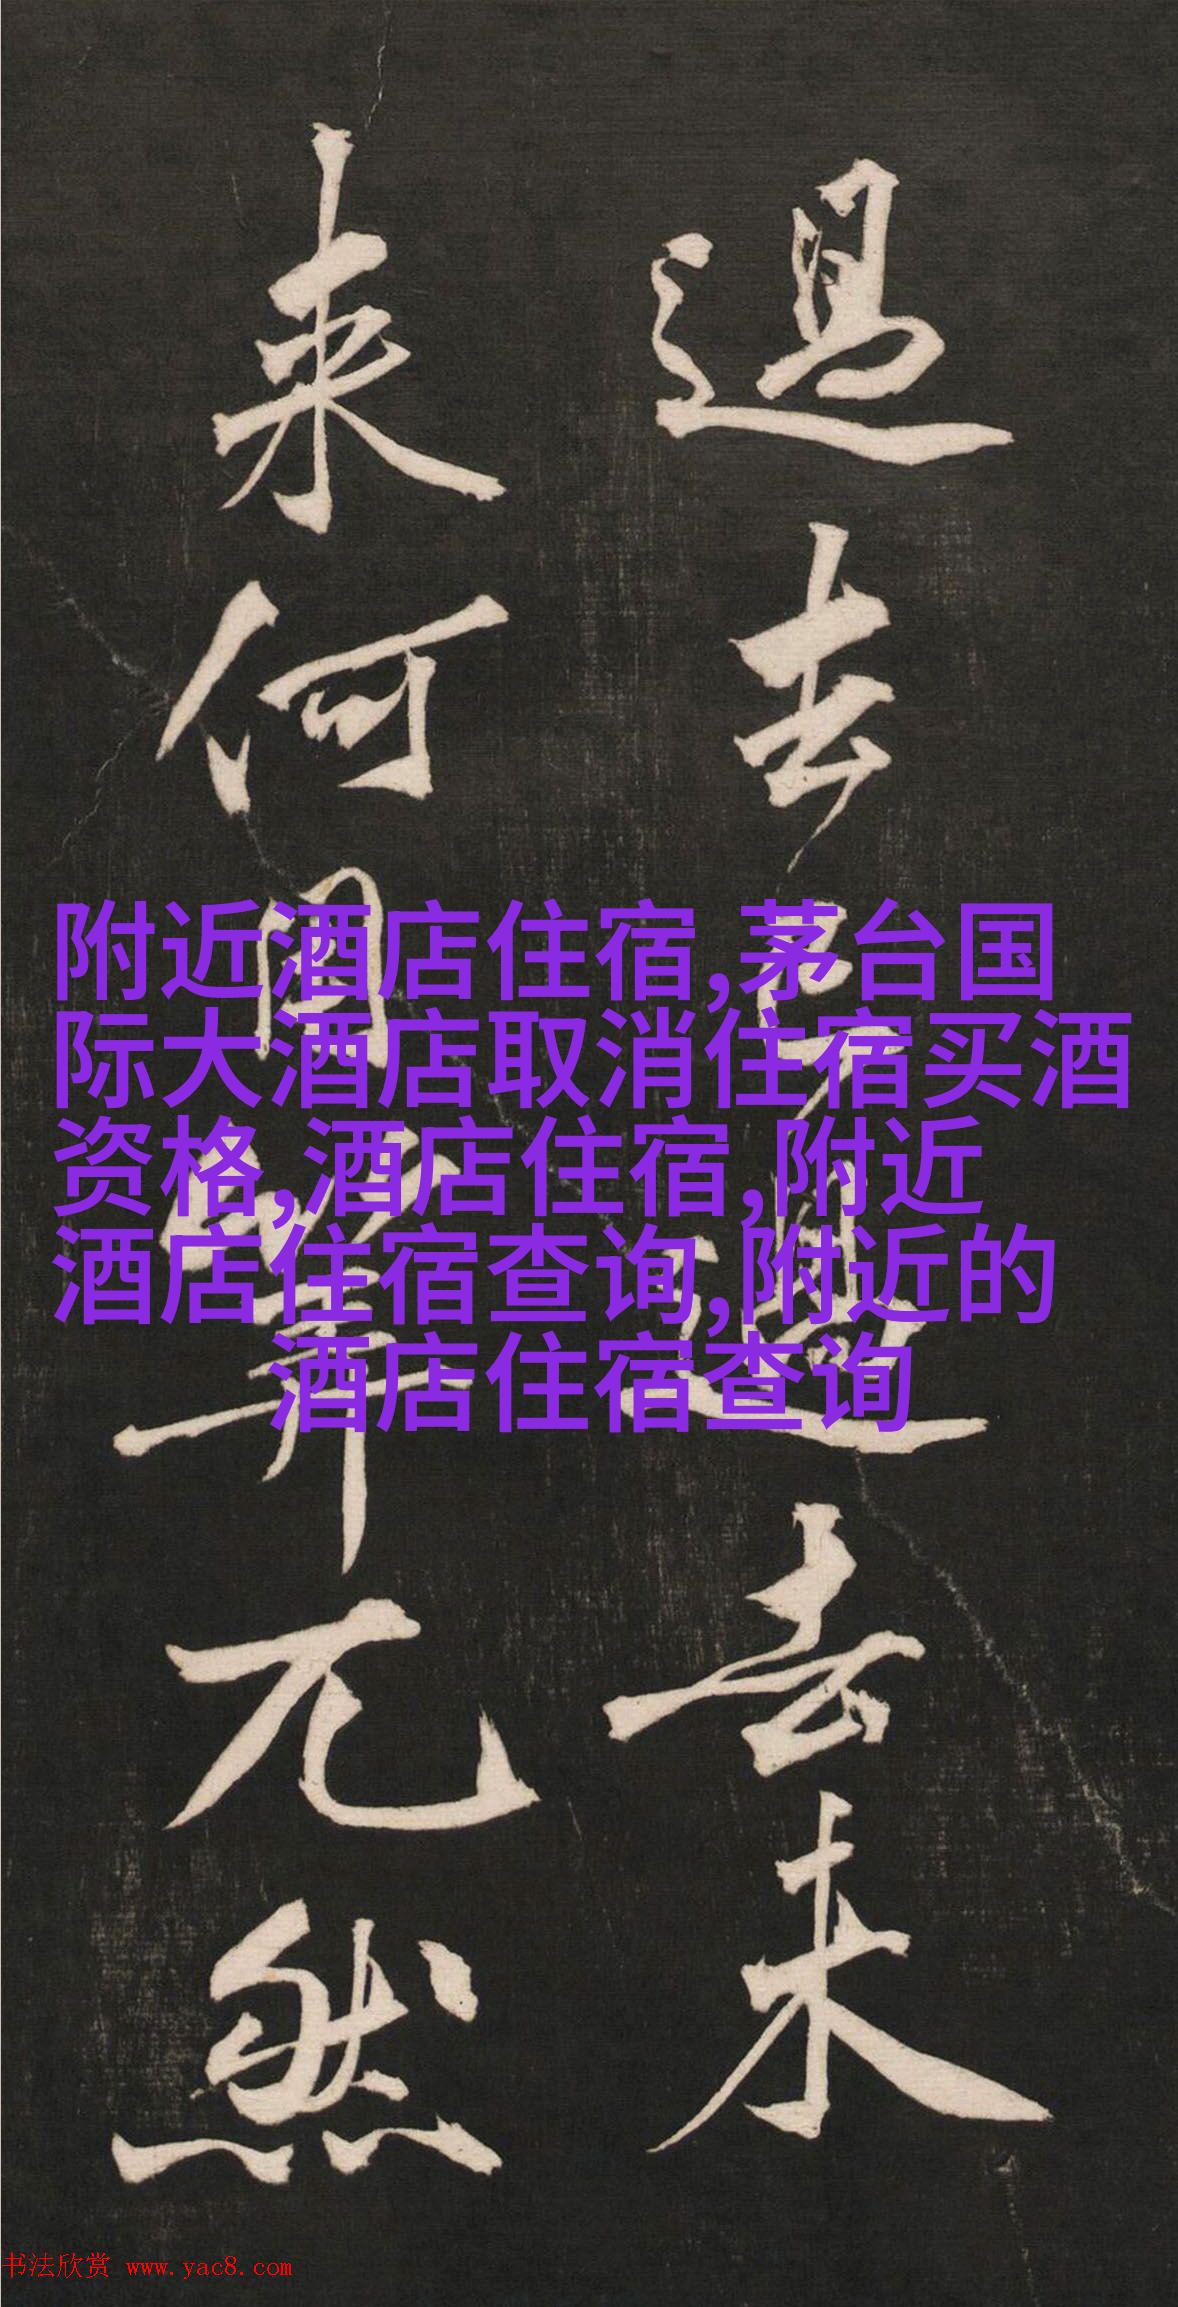 過去已過去未
来何用筭兀然
附近酒店住宿,茅台国
际大酒店取消住宿买酒
资格,酒店住宿,附近
酒店住宿查询,附近的
酒店住宿查询
书法欣赏 www.yac8.com